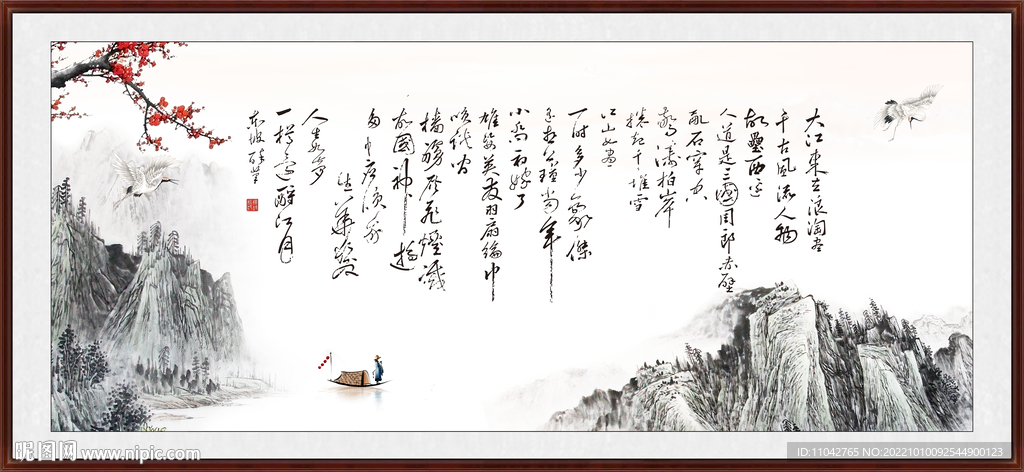 大江東去浪淘尽
千古風流人物
故壘西边
人道是三國周郎赤壁
乱石穿空
驚濤拍岸
捲起千堆雪
江山如畫
一时多少豪傑
遥想公瑾当年
小喬初嫁了
雄姿英发羽扇綸巾
谈笑间
檣櫓灰飛煙滅
故國神遊
多情应笑我
早生華髮
人生如梦
一樽還酹江月
东坡
昵图网 www.nipic.com
ID:11042765 NO:20221010092544900123